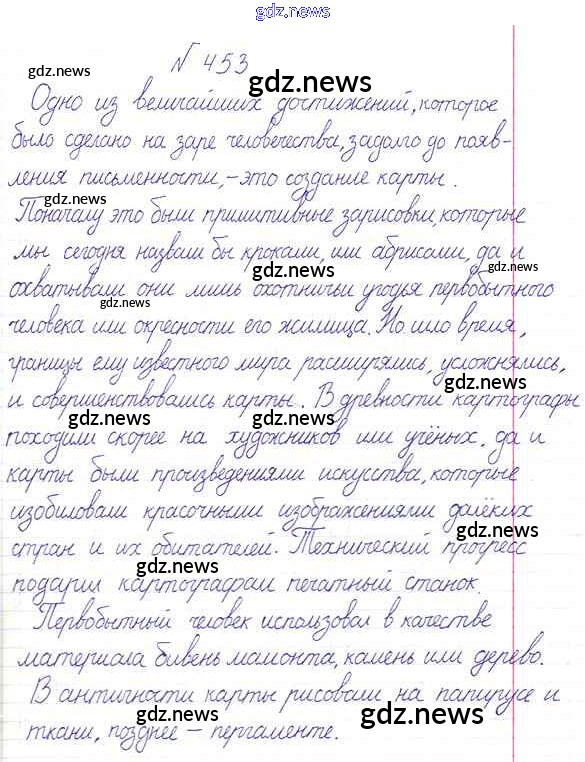 gdz.news
№ 453
gdz.news
gdz.news
Одно из величайших достижений, которое
было сделано на заре человечества, задолго до появ-
ления письменности, – это создание карты.
gdz.news
gdz.news
Поначалу это были примитивные зарисовки, которые
мы сегодня назвали бы кроками, или абрисами, да и
gdz.news
gdz.news
охватывали они лишь охотничьи угодья первобытного
gdz.news
человека или окресности его жилища. Но шло время,
границы ему известного мира расширялись, усложнялись,
gdz.news
и совершенствовались карты. В древности картографы
gdz.news
gdz.news
походили скорее на художников или учёных, да и
карты были произведениями искусства, которые
изобиловали красочными изображениями далёких
gdz.news
стран и их обитателей. Технический прогресс
gdz.news
gdz.news
подарил картографам печатный станок.
Первобытный человек использовал в качестве
gdz.news
gdz.news
материала бивень мамонта, камень или дерево.
В античности карты рисовали на папирусе и
gdz.news
gdz.news
ткани, позднее – пергаменте.